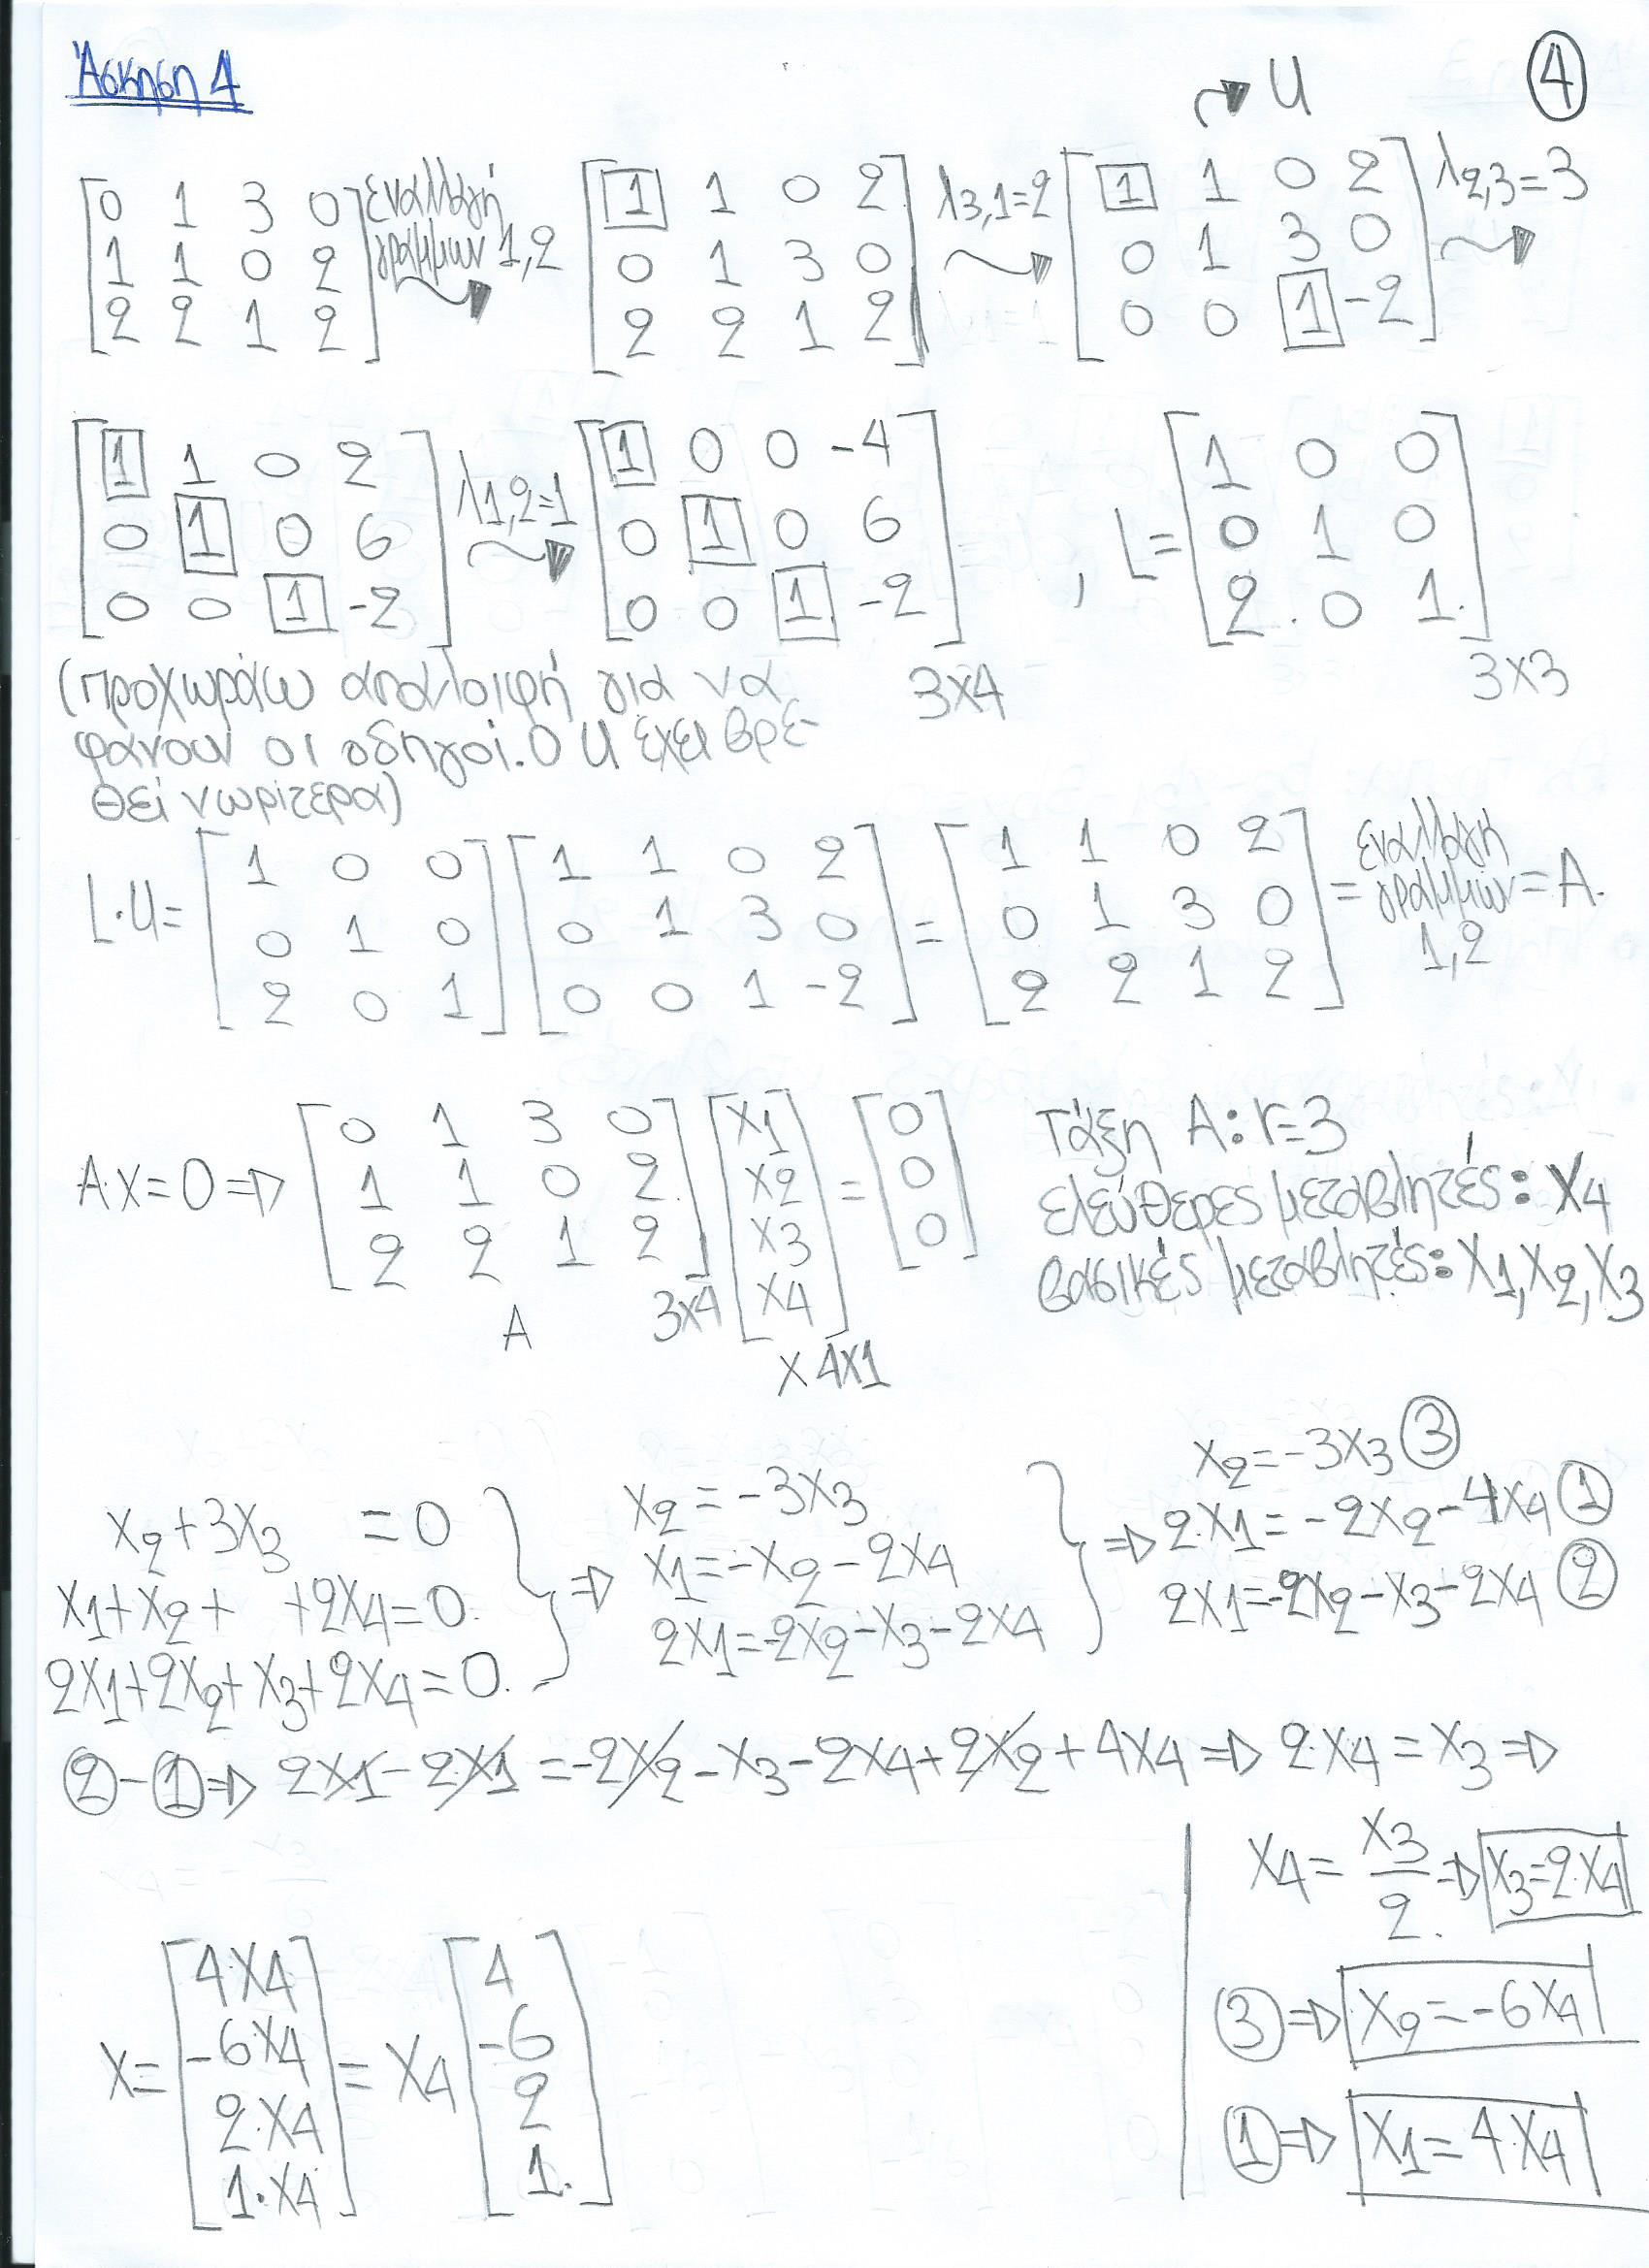 Άσκηση 4
→ U
④
[0 1 3 0
1 1 0 2
2 2 1 2]
εναλλαγή
γραμμών 1,2
→
[1 1 0 2
0 1 3 0
2 2 1 2]
λ3,1=2
→
[1 1 0 2
0 1 3 0
0 0 1 -2]
λ2,3=3
→
[1 1 0 2
0 1 0 6
0 0 1 -2]
λ1,2=1
→
[1 0 0 -4
0 1 0 6
0 0 1 -2]
3x4
, L=
[1 0 0
0 1 0
2 0 1]
3x3
(προχωράω απαλοιφή για να
φανουν οι οδηγοί. Ο U έχει βρε-
θεί νωρίτερα)
L·U=
[1 0 0
0 1 0
2 0 1]
[1 1 0 2
0 1 3 0
0 0 1 -2]
=
[1 1 0 2
0 1 3 0
2 2 1 2]
= εναλλαγη
γραμμών
1,2
= A.
A·X=0 ⇒
[0 1 3 0
1 1 0 2
2 2 1 2]
A 3x4
[X1
X2
X3
X4]
X 4x1
=
[0
0
0]
τάξη A: r=3
ελεύθερες μεταβλητές: X4
βασικές μεταβλητές: X1, X2, X3
X2+3X3 =0
X1+X2+ +2X4=0.
2X1+2X2+X3+2X4=0.
⇒
X2=-3X3
X1=-X2-2X4
2X1=-2X2-X3-2X4
⇒
X2=-3X3 ③
2·X1=-2X2-4X4 ①
2X1=-2X2-X3-2X4 ②
②-①⇒ 2X1-2X1 =-2X2-X3-2X4+2X2+4X4 ⇒ 2·X4=X3 ⇒
X4=X3/2. ⇒ X3=2·X4
③⇒ X2=-6X4
①⇒ X1=4·X4
X=
[4·X4
-6·X4
2·X4
1·X4]
= X4
[4
-6
2
1.]